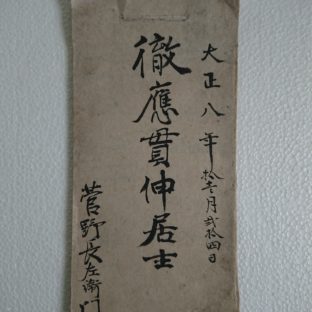 大正八年拾壱月弐拾四日
徹應貫伸居士
菅野長左衛門